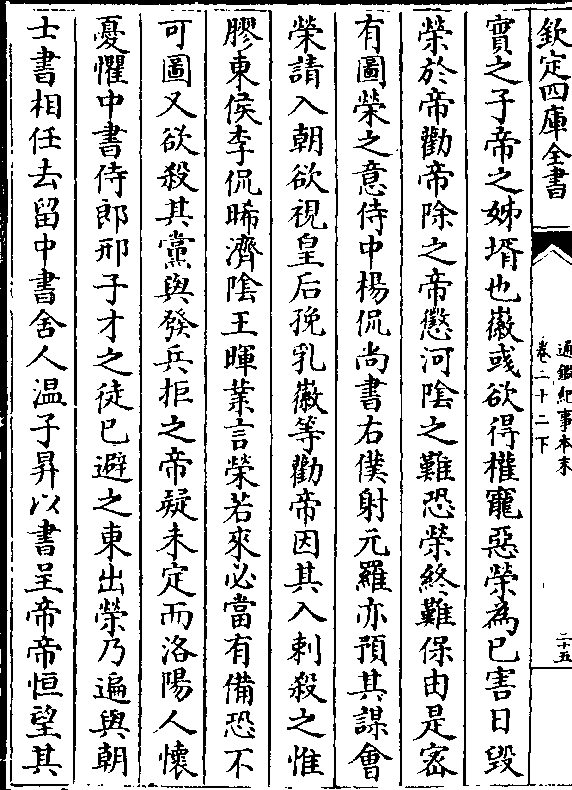 欽定四庫全書
通鑑紀事本末
卷二十二下
二十五
實之子帝之姊壻也徽彧欲得權寵惡榮為已害日毀
榮於帝勸帝除之帝懲河陰之難恐榮終難保由是宻
有圖榮之意侍中楊侃尚書右僕射元羅亦預其謀會
榮請入朝欲視皇后挽乳徽等勸帝因其入刺殺之惟
膠東侯李侃晞濟隂王暉業言榮若來必當有備恐不
可圖又欲殺其黨與發兵拒之帝疑未定而洛陽人懷
憂懼中書侍郎邢子才之徒已避之東出榮乃遍與朝
士書相任去留中書舍人温子昇以書呈帝帝恒望其